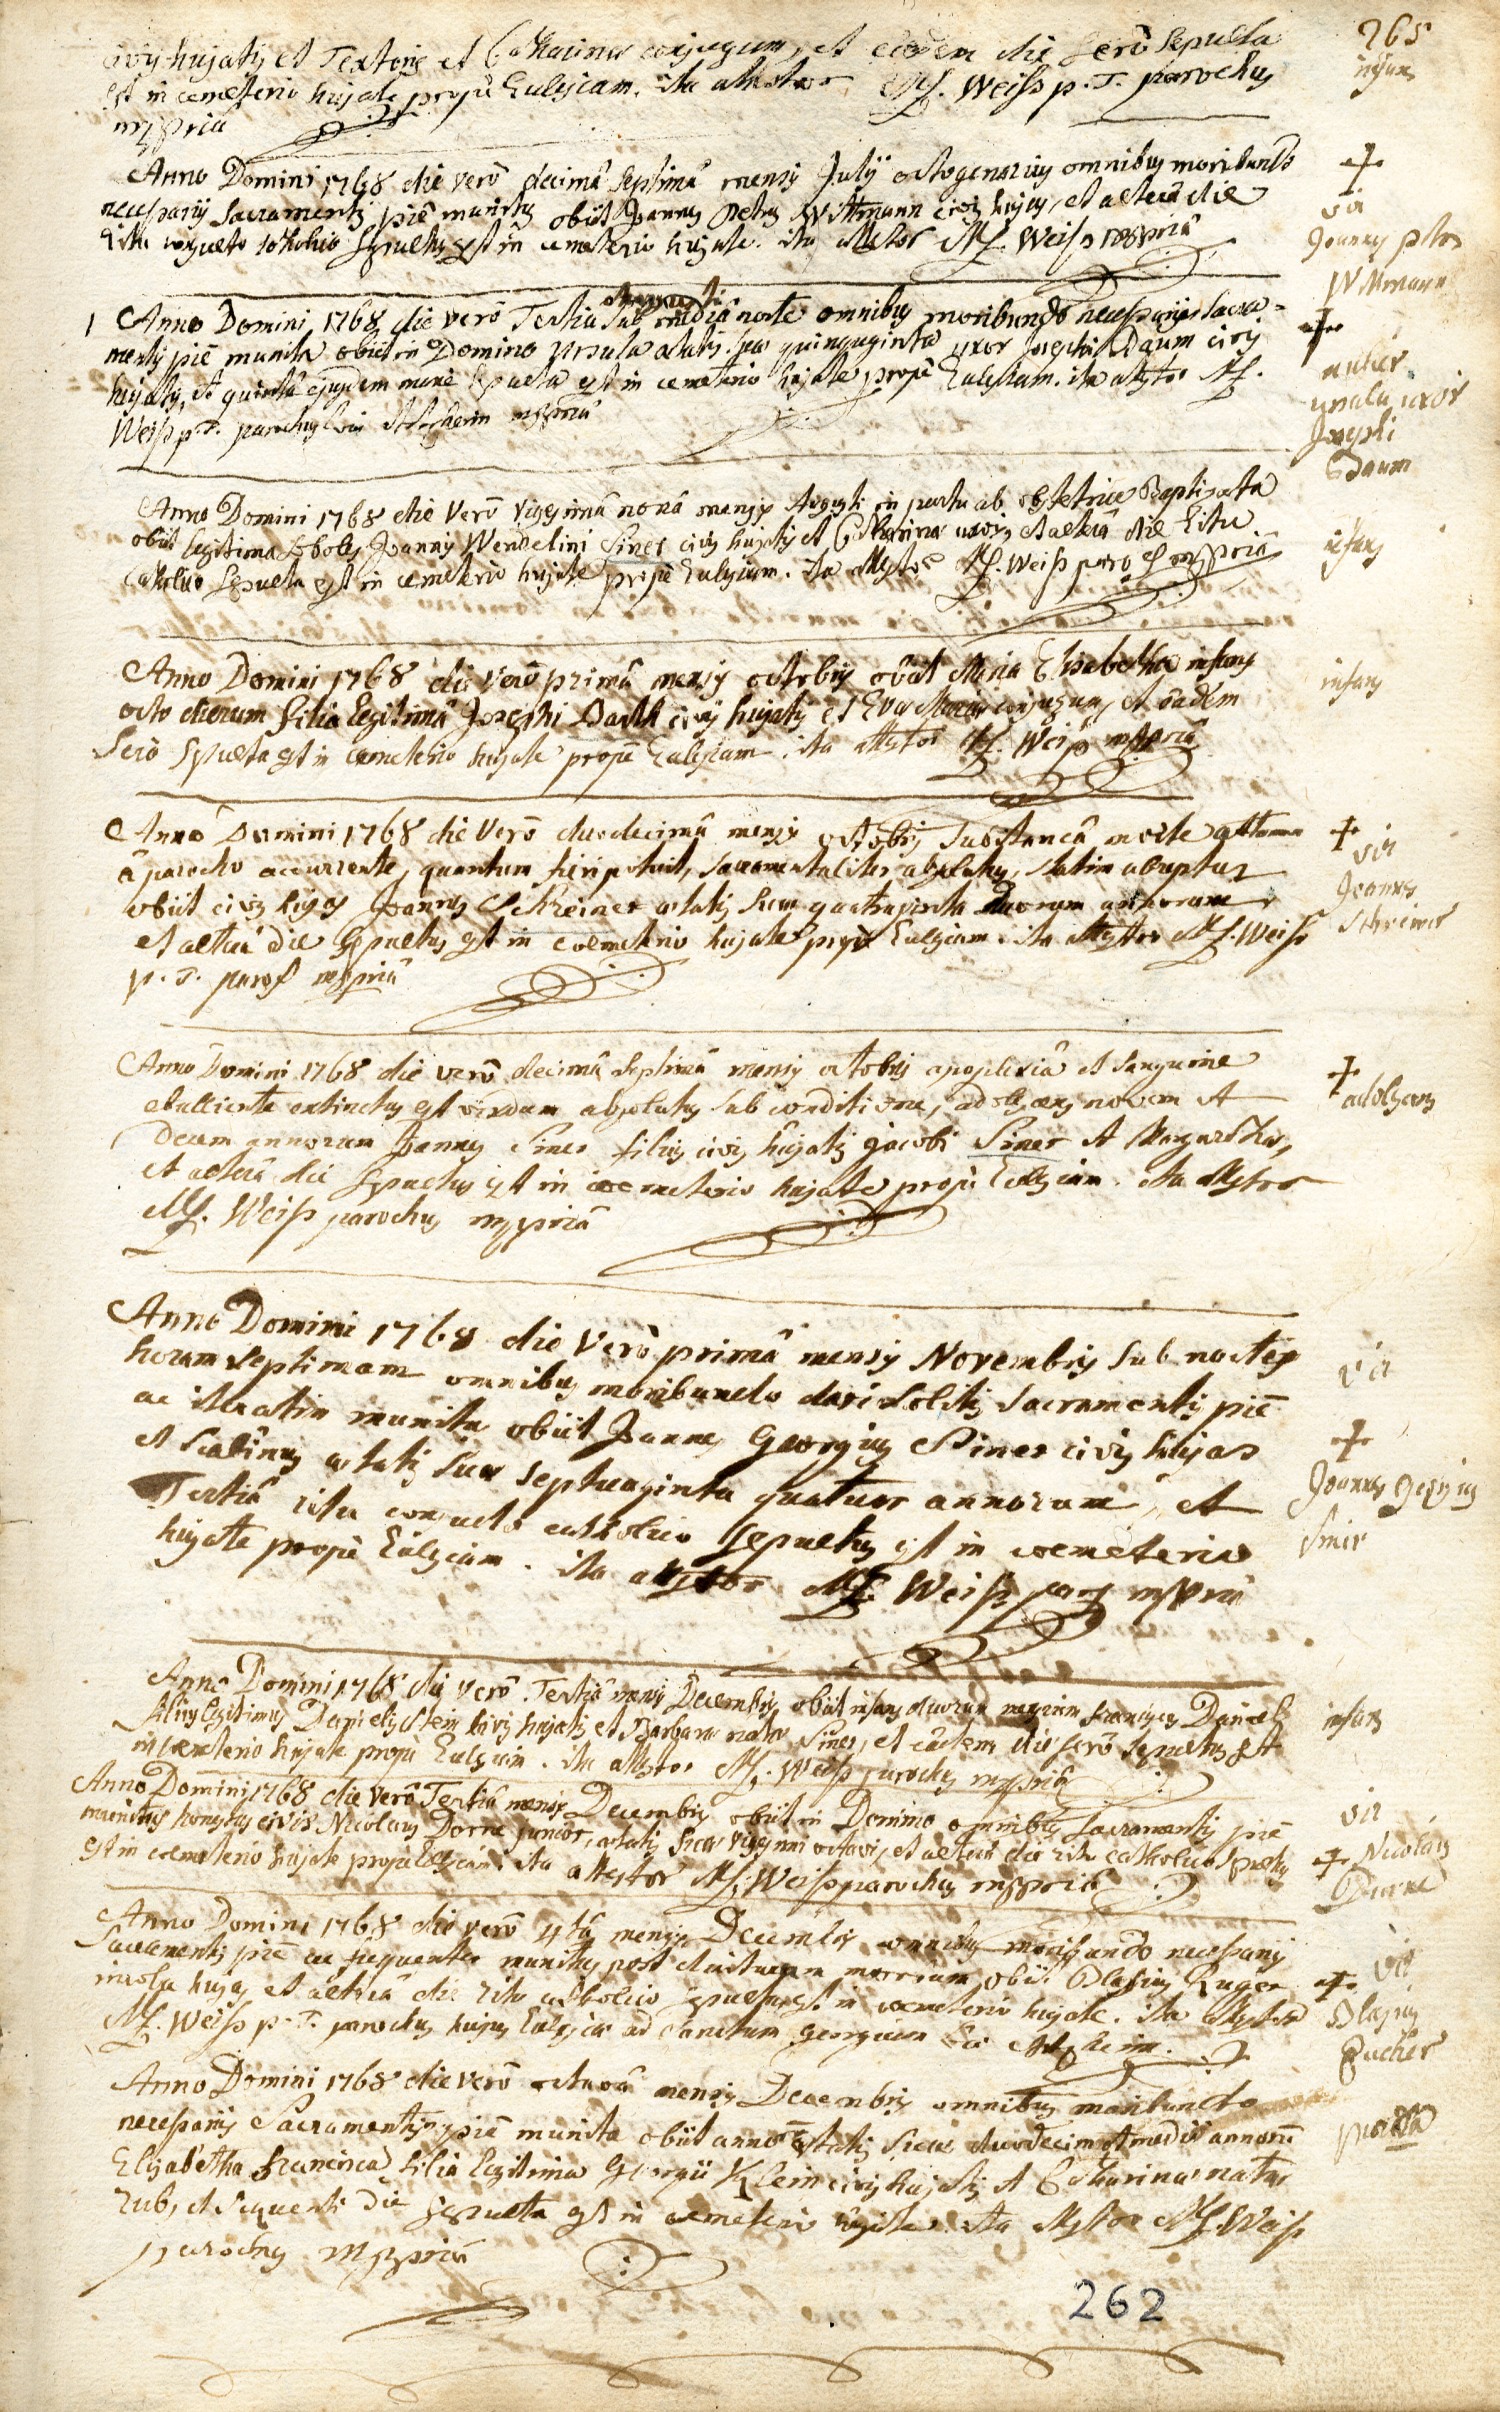 265
civis hujatis et Textoris et Catharinae conjugum, et eodem die serò sepulta
infans
est in cemeterio hujate propè Ecclesiam. ita attestor M. Weiss p. T. parochus
mppriâ
Anno Domini 1768 die verò decimâ septimâ mensis Julÿ octogenarius omnibus moribundo
necessarÿs sacramentis piè munitus obiit Joannes Petrus Wittmann civis hujas, et alterâ die
ritu consueto catholico sepultus est in cemeterio hujate. ita attestor M. Weiss mppriâ
vir
Joannes petrus
Wittmann
Augusti
1 Anno Domini 1768 die verò Tertia sub mediâ nocte omnibus moribundo necessarÿs sacra=
mentis piè munita obiit in Domino Ursula aetatis suae quinquaginta uxor Josephi Daum civis
hujatis, et quintâ ejusdem mane sepulta est in cemeterio hujate propè Ecclesiam. ita attestor M.
Weiss p. T. parochus mppriâ
mulier
ursula uxor
Josephi
Daum
Anno Domini 1768 die verò vigesimâ nonâ mensis Augusti in partu ab obstetrice Baptizata
obiit legitima soboles Joannis Wendelini Siner civis hujatis et Catharinae uxoris et alterâ die ritu
catholico sepulta est in cemeterio hujate propè Ecclesiam. ita attestor M. Weiss paro mppriâ
infans
Anno Domini 1768 die verò primâ mensis octobris obiit Maria Elisabetha infans
octo dierum filia legitima Josephi Barth civis hujatis et Evae Mariae conjugum, et eâdem
serò sepulta est in cemeterio hujate propè Ecclesiam. ita attestor M. Weiss mppriâ
infans
Anno Domini 1768 die verò duodecimâ mensis octobris subitaneâ morte attamen
â parocho accurrente, quantum fieri potuit, sacramentaliter absolutus, statim abreptus
obiit civis hujas Joannes Schreiner aetatis suae quadraginta duorum annorum
et alterâ die sepultus est in coemeterio hujate propè Ecclesiam. ita attestor M. Weiss
p. T. paroch mppriâ
vir
Joannes
Schreiner
Anno Domini 1768 die verò decimâ septimâ mensis octobris apoplexiâ et sanguine
ebulliente extinctus est absolutus sub conditione, adolescens novem et
decem annorum Joannes Siner filius civis hujatis Jacobi Siner et Margarethae,
et alterâ die sepultus est in coemeterio hujate propè Ecclesiam. ita attestor
M. Weiss parochus mppriâ
adolescens
Anno Domini 1768 die verò primâ mensis Novembris sub noctis
horam septimam omnibus moribundo dari solitis sacramentis piè
ac iteratim munita obiit Joannes Georgius Siner civis hujas
et scabinus aetatis suae septuaginta quatuor annorum, et
Tertiâ ritu consueto catholico sepultus est in coemeterio
hujate propè Ecclesiam. ita attestor M. Weiss paro mppriâ
vir
Joannes Georgius
Siner
Anno Domini 1768 die verò Tertiâ mensis Decembris obiit infans duorum mensium franciscus Daniel
filius legitimus Danielis Stein civis hujatis et Barbarae natae Siner, et eâdem die serò sepultus est
in cemeterio hujate propè Ecclesiam. ita attestor M. Weiss parochus mppriâ
infans
Anno Domini 1768 die verò Tertiâ mensis Decembris obiit in Domino omnibus sacramentis piè
munitus honestus civis Nicolaus Dorne junior, aetatis suae vigesimi octavi, et alterâ die ritu catholico sepultus
est in coemeterio hujate propè Ecclesiam ita attestor M. Weiss parochus mppriâ
vir
Nicolaus
Durne
Anno Domini 1768 die verò mensis Decembris omnibus moribundo necessarÿs
sacramentis piè ac frequenter munitus post diuturnum morbum, obiit Blasius Ruger
incola hujas, et alterâ die ritu catholico sepultus est in coemeterio hujate. ita attestor
M. Weiss p. T. parochus hujus Ecclesiae ad Sanctum Georgium
vir
Blasius
Anno Domini 1768 die verò octavâ mensis Decembris omnibus moribundo
necessarÿs Sacramentis piè munita obiit anno aetatis suae duodecim et medii annorum
Elisabetha francisca filia legitima Georgii Klein civis hujatis et Catharinae natae
Rub, et sequenti die sepulta est in cemeterio hujate. ita attestor M. Weiss
parochus mppriâ
262